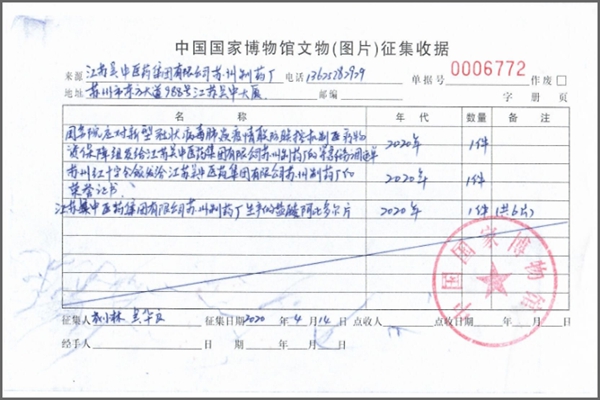 中国国家博物馆文物(图片)征集收据
来源 江苏吴中医药集团有限公司苏州制药厂 电话 13625282929 单据号 0006772 作废□
地址 苏州市东方大道988号江苏吴中大厦 邮编 字 册 页
年代 数量 备注
国务院应对新型冠状病毒肺炎疫情联防联控机制医疗物
资保障组发给江苏吴中医药集团有限公司苏州制药厂的 调单 2020年 1件
苏州红十字会颁发给江苏吴中医药集团有限公司苏州制药厂的
荣誉证书 2020年 1件
江苏吴中医药集团有限公司苏州制药厂生产的盐酸阿比多尔片 2020年 1件 (共6片)
中国国家博物馆
征集人 林 征集日期 2020 年 4 月 14 日 点收人 点收日期 年 月 日
经手人 年 月 日